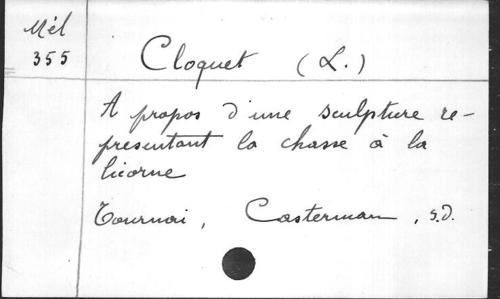 Mél
355
Cloquet (L.)
A propos d'une sculpture re-
presentant la chasse à la
licorne
Tournai, Casterman, s.d.